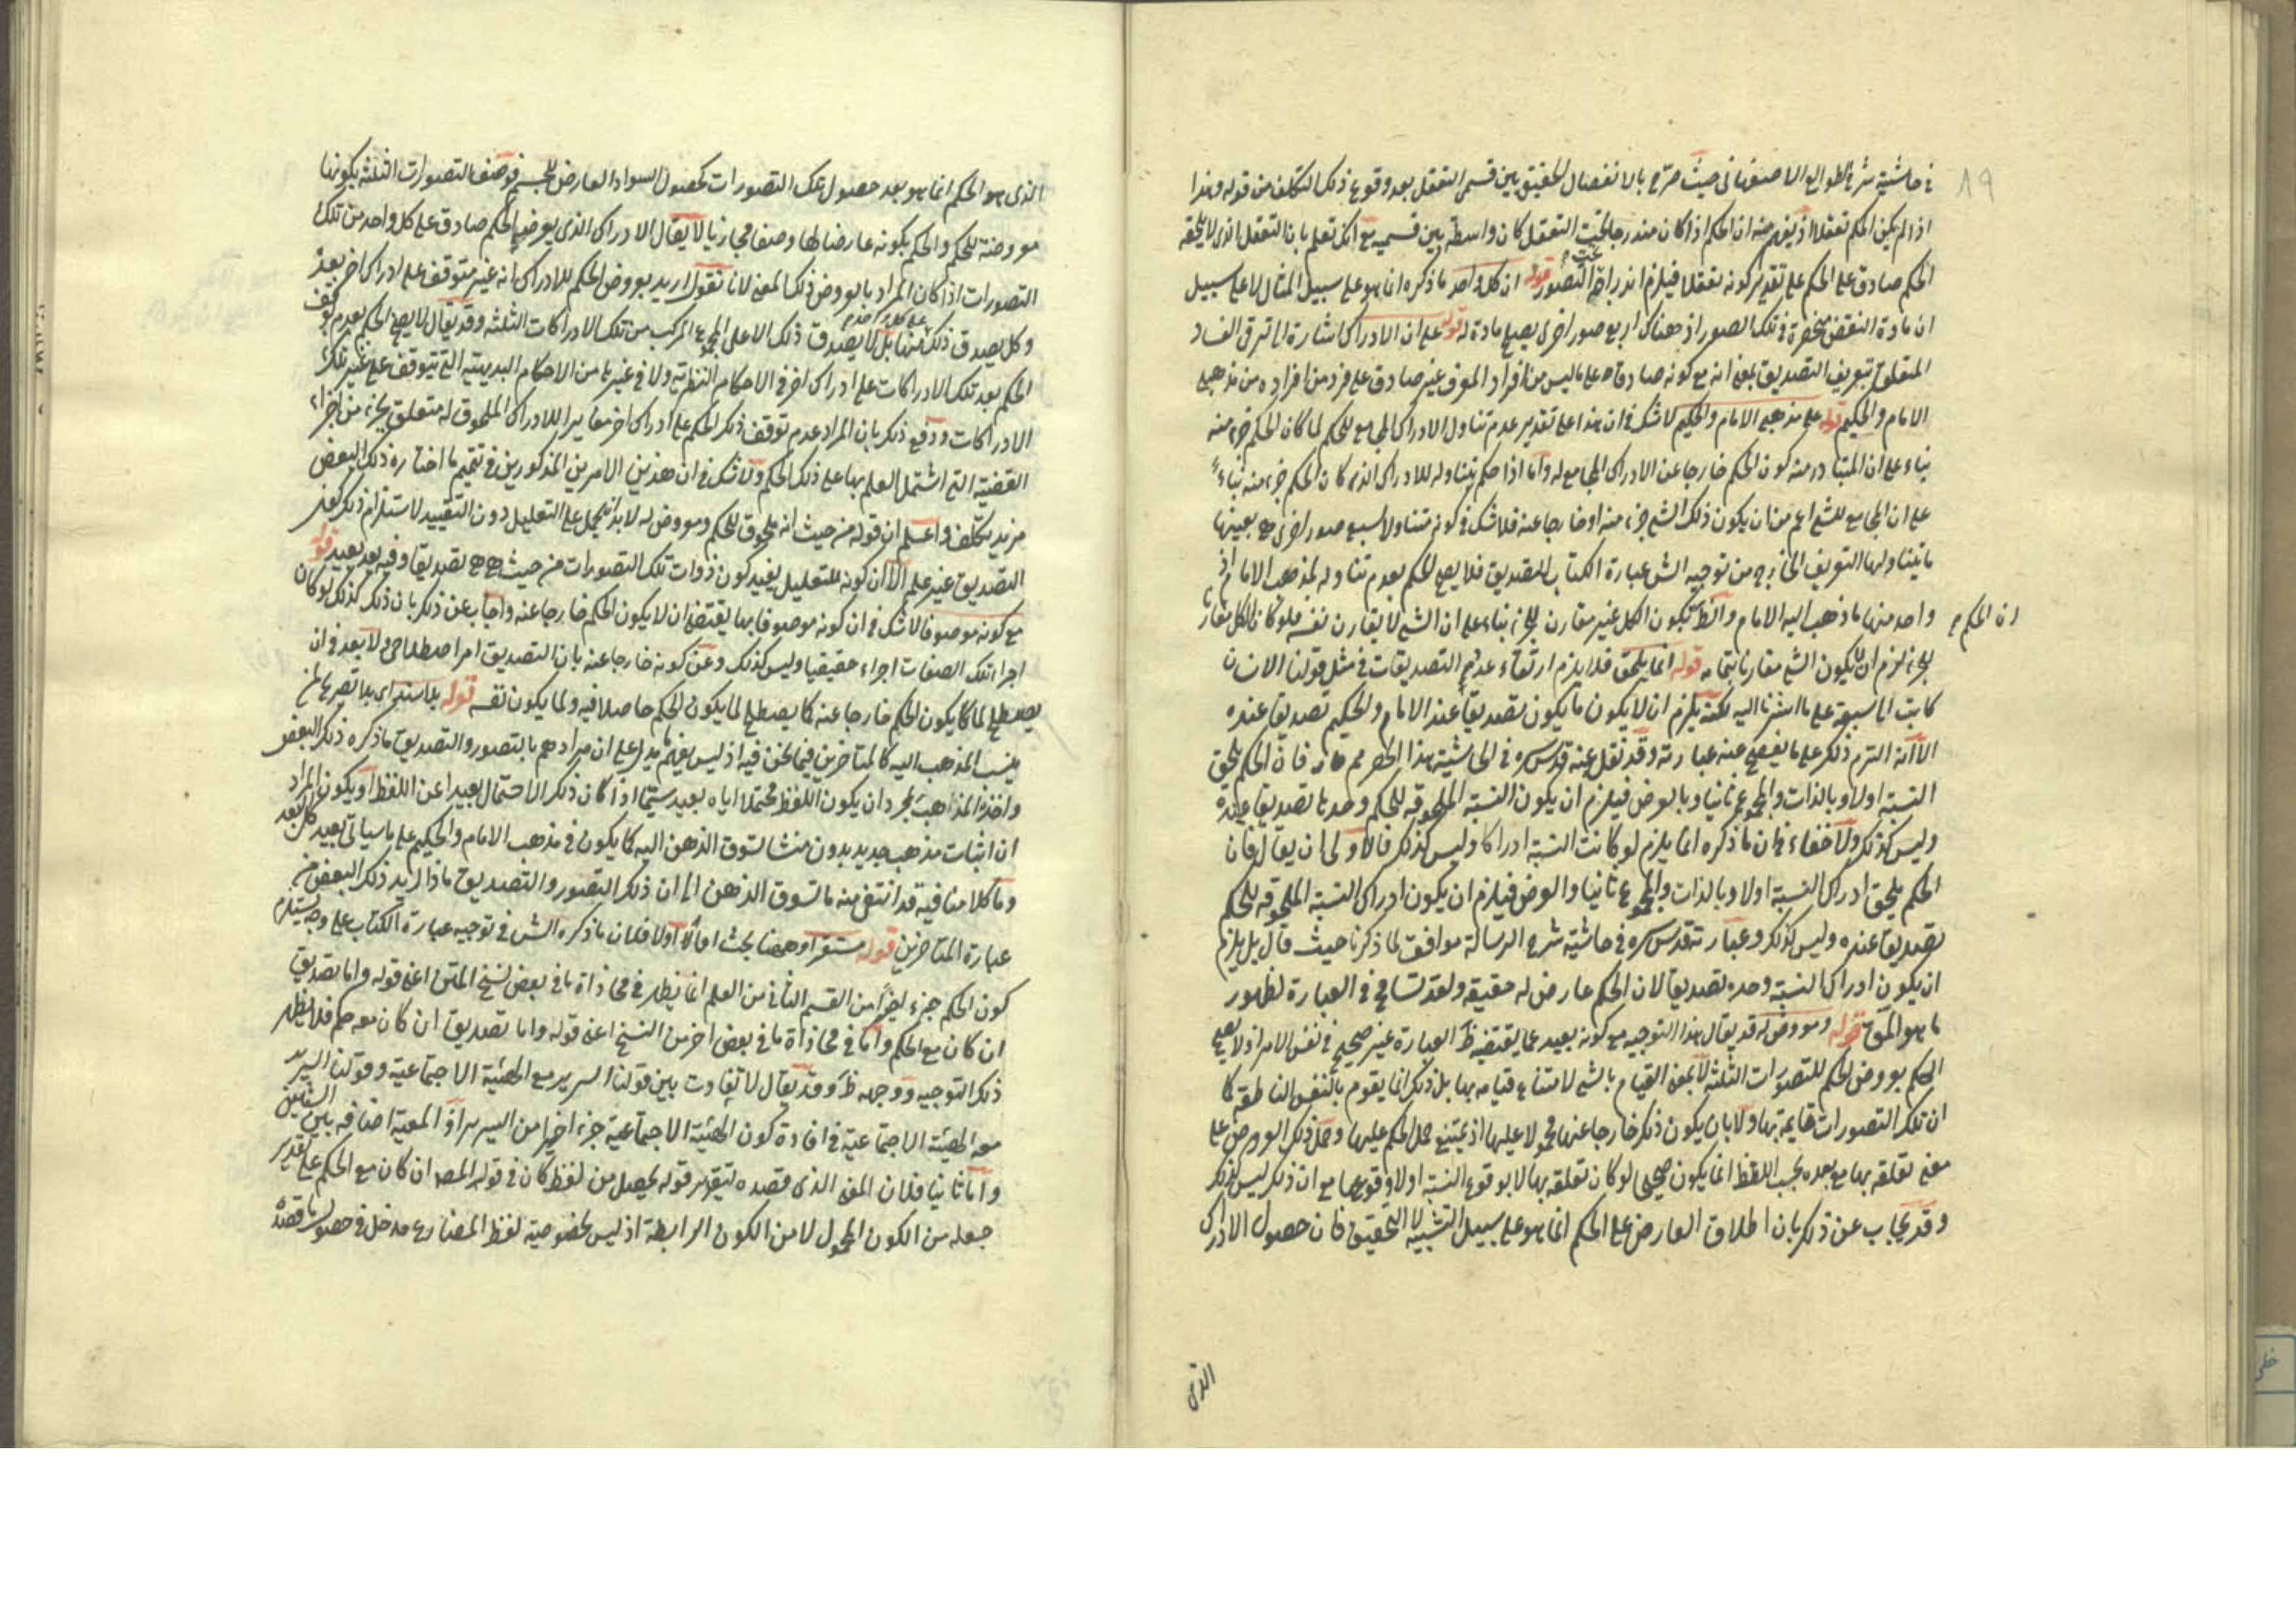 ٨٩
في حاشية شرح الطوالع للاصفهاني حيث صرح بالانفصال الحقيقي بين قسمي التعقل بعد وقوع ذلك التكلف من قوله وهذا
اذا لم يكن الحكم تعقلا اذ يفهم منه ان الحكم اذا كان مندرجا تحت التعقل كان واسطة بين قسميه مع انك تعلم بان التعقل الذي لا يلحقه
الحكم صادق على الحكم على تقدير كونه تعقلا فيلزم اندراجه تحت التصور قوله ان كل واحد ما ذكره انما هو على سبيل المثال لا على سبيل
ان مادة النقض منحصرة في تلك الصور اذ هناك اربع صور اخرى يصلح مادة له قوله على ان الادراك اشارة الى ترقي الفساد
المتعلق بتعريف التصديق بمعنى انه مع كونه صادقا على ما ليس من افراد المعرف غير صادق على فرد من افراده من مذهبي
الامام والحكيم قوله على مذهبي الامام والحكيم لا شك في ان هذا على تقدير عدم تناول الادراك المجامع للحكم لما كان الحكم جزء منه
بناء على ان المتبادر منه كون الحكم خارجا عن الادراك المجامع له واما اذا حكم بتناوله للادراك الذي كان الحكم جزء منه بناء
على ان المجامع للشئ اعم من ان يكون ذلك الشئ جزء منه او خارجا عنه فلا شك في كونه متناولا لسبع صور اخرى هي بعينها
ما يتناولها التعريف المخرج من توجيه الش عبارة الكتاب للتصديق فلا يصح الحكم بعدم تناوله لمذهب الامام اذ
واحد منها ما ذهب اليه الامام والنظر بكون الكل غير مقارن للجزء بناء على ان الشئ لا يقارن نفسه فلو كان الكل مقارنا
ان الحكم م
للجزء لزم ان يكون الشئ مقارنا بتمامه قوله انما يلحق فلا يلزم ارتقاء عدد التصديقات في مثل قولنا الانسان
كاتب الى سبعة على ما اشرنا اليه لكنه يلزم ان لا يكون ما يكون تصديقا عند الامام والحكيم تصديقا عنده
الا انه التزم ذلك على ما يفصح عنه عبارته وقد نقل عنه قدس سره في الحاشية هذا الحصر مم فان الحكم يلحق
النسبة اولا وبالذات والمجموع ثانيا وبالعرض فيلزم ان يكون النسبة الملحوقة للحكم وحدها تصديقا عنده
وليس كذلك ولا خفاء في ان ما ذكره انما يلزم لو كانت النسبة ادراكا وليس كذلك فالاولى ان يقال فان
الحكم يلحق ادراك النسبة اولا وبالذات والمجموع ثانيا والعرض فيلزم ان يكون ادراك النسبة الملحوقة للحكم
تصديقا عنده وليس كذلك وعبارته قدس سره في حاشية شرح الرسالة موافق لما ذكرنا حيث قال بل يلزم
ان يكون ادراك النسبة وحده تصديقا لان الحكم عارض له حقيقة ولقد تسامح في العبارة لظهور
ما هو المق قوله ومعروض له قد يقال هذا التوجيه مع كونه بعيد عما يقتضيه ظ العبارة غير صحيح في نفس الامر اذ لا يصح
الحكم بعروض الحكم للتصورات الثلثة لا بمعنى القيام بالشئ لامتناع قيامه بها بل ذلك انما يقوم بالنفس الناطقة كما
ان تلك التصورات قايمة بها ولا بان يكون ذلك خارجا عنها محمولا عليها اذ يمتنع حمل الحكم عليها وحمل ذلك العروض على
معنى تعلقه بها مع بعده بحسب اللفظ انما يكون صحيحا لو كان تعلقه بها لا بوقوع النسبة اولا وقوعها مع ان ذلك ليس كذلك
وقد يجاب عن ذلك بان اطلاق العارض على الحكم انما هو على سبيل التشبيه لا التحقيق فان حصول الادراك
الذي
الذي هو الحكم انما هو بعد حصول تلك التصورات كحصول السواد العارض للجسم فوصف التصورات الثلثة بكونها
معروضة للحكم والحكم بكونه عارضا لها وصفا مجازيا لا يقال الادراك الذي يعرضه الحكم صادق على كل واحد من تلك
التصورات اذا كان المراد بالعروض ذلك المعنى لانا نقول اريد بعروض الحكم للادراك انه غير متوقف على ادراك اخر بعده
وكل يصدق ذلك منها بل لا يصدق ذلك الا على المجموع المركب من تلك الادراكات الثلثة وقد يقال لا يصح الحكم بعدم توقف
الحكم بعد تلك الادراكات على ادراك اخر في الاحكام النظرية ولا في غيرها من الاحكام البديهية التي تتوقف على غير تلك
الادراكات ودفع ذلك بان المراد عدم توقف ذلك الحكم على ادراك اخر مغايرا للادراك الملحوق له متعلق بجزء من اجزاء
القضية التي اشتمل العلم بها على ذلك الحكم ولا شك في ان هذين الامرين المذكورين في تتميم ما اختاره ذلك البعض
مزيد تكلف واعلم ان قوله من حيث انه ملحوق للحكم ومعروض له لا بد ان يحمل على التعليل دون التقييد لاستلزام ذلك كون
التصديق غير علم الا ان كونه للتعليل يفيد كون ذوات تلك التصورات من حيث هي هي تصديقا وفيه بعد بعيد قوله
مع كونه موصوفا لا شك في ان كونه موصوفا بها يقتضي ان لا يكون الحكم خارجا عنه واجاب عن ذلك بان ذلك كذلك لو كان
اجراء تلك الصفات اجراء حقيقيا وليس كذلك وعن كونه خارجا عنه بان التصديق امر اصطلاحي ولا بعد في ان
يصطلح لما يكون الحكم خارجا عنه كما يصطلح لما يكون الحكم حاصلا فيه ولما يكون نفسه قوله بلا استدراك بلا تصريح لمن
ينسب المذهب اليه كالمتاخرين فيما نحن فيه اذ ليس يفهم ما يدل على ان مرادهم بالتصور والتصديق ما ذكره ذلك البعض
واخذ المذاهب بمجرد ان يكون اللفظ محتملا اياه بعيد سيما اذا كان ذلك الاحتمال بعيدا عن اللفظ او يكون المراد
ان اثبات مذهب جديد بدون منشا لتشوق الذهن اليه كما يكون في مذهب الامام والحكيم على ما سياتي بعيد كل البعد
وما كلامنا فيه قد انتفى منه ما تشوق الذهن الى ان ذلك التصور والتصديق ماذا اريد ذلك البعض من
عبارة المتاخرين قوله مستقرا وههنا بحث اما اولا فلان ما ذكره الش في توجيه عبارة الكتاب على وجه يستلزم
كون الحكم جزء اخيرا من القسم الثاني من العلم انما يظهر في محاذاة ما في بعض نسخ المتن اعني قوله واما تصديق
ان كان مع الحكم واما في محاذاة ما في بعض اخر من النسخ اعني قوله واما تصديق ان كان معه حكم فلا يظهر
ذلك التوجيه ووجهه ظ وقد يقال لا تفاوت بين قولنا السرير مع الهيئة الاجتماعية وقولنا السرير
معه الهيئة الاجتماعية في افادة كون الهيئة الاجتماعية جزء اخيرا من السرير اذ المعية اضافة بين الشيئين
واما ثانيا فلان المعنى الذي قصده لتقرير قوله يحصل من لفظ كان في قوله المصه ان كان مع الحكم على تقدير
جعله من الكون المحمول لا من الكون الرابطة اذ ليس لخصوصية لفظ المضارع مدخل في حصول ما قصده